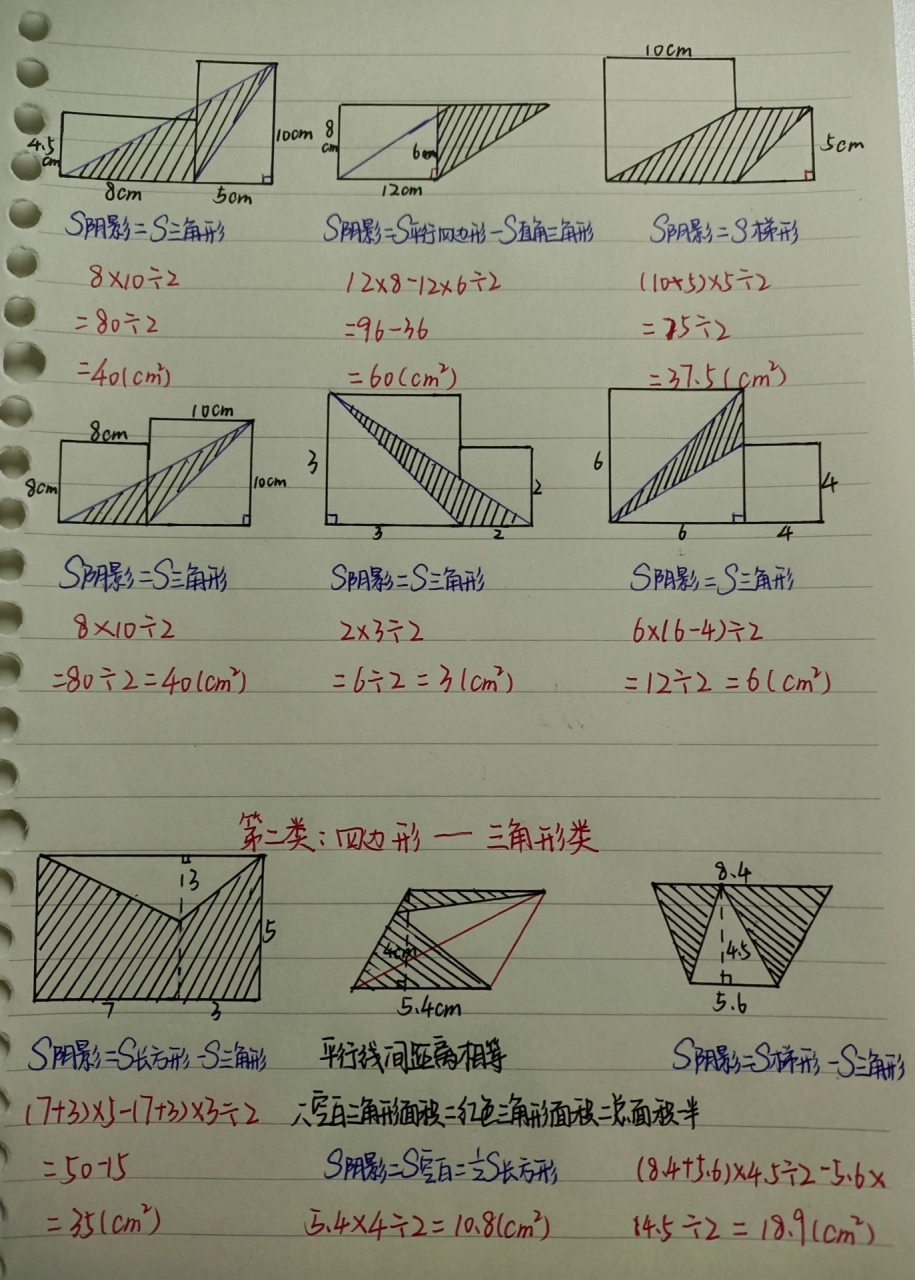 10cm
4.5cm
10cm
8cm
6cm
5cm
8cm
5cm
12cm
S阴影=S三角形
S阴影=S平行四边形-S直角三角形
S阴影=S梯形
8×10÷2
12×8-12×6÷2
(10+5)×5÷2
=80÷2
=96-36
=75÷2
=40(cm²)
=60(cm²)
=37.5(cm²)
8cm
10cm
8cm
10cm
3
2
3
2
6
4
6
4
S阴影=S三角形
S阴影=S三角形
S阴影=S三角形
8×10÷2
2×3÷2
6×(6-4)÷2
=80÷2=40(cm²)
=6÷2=3(cm²)
=12÷2=6(cm²)
第二类:四边形一三角形类
3
5
7
3
4cm
5.4cm
8.4
4.5
5.6
S阴影=S长方形-S三角形
平行线间距离相等
S阴影=S梯形-S三角形
(7+3)×5-(7+3)×3÷2
∴空白三角形面积=红色三角形面积=总面积一半
=50-15
S阴影=S空白=½S长方形
(8.4+5.6)×4.5÷2-5.6×
=35(cm²)
5.4×4÷2=10.8(cm²)
4.5÷2=18.9(cm²)